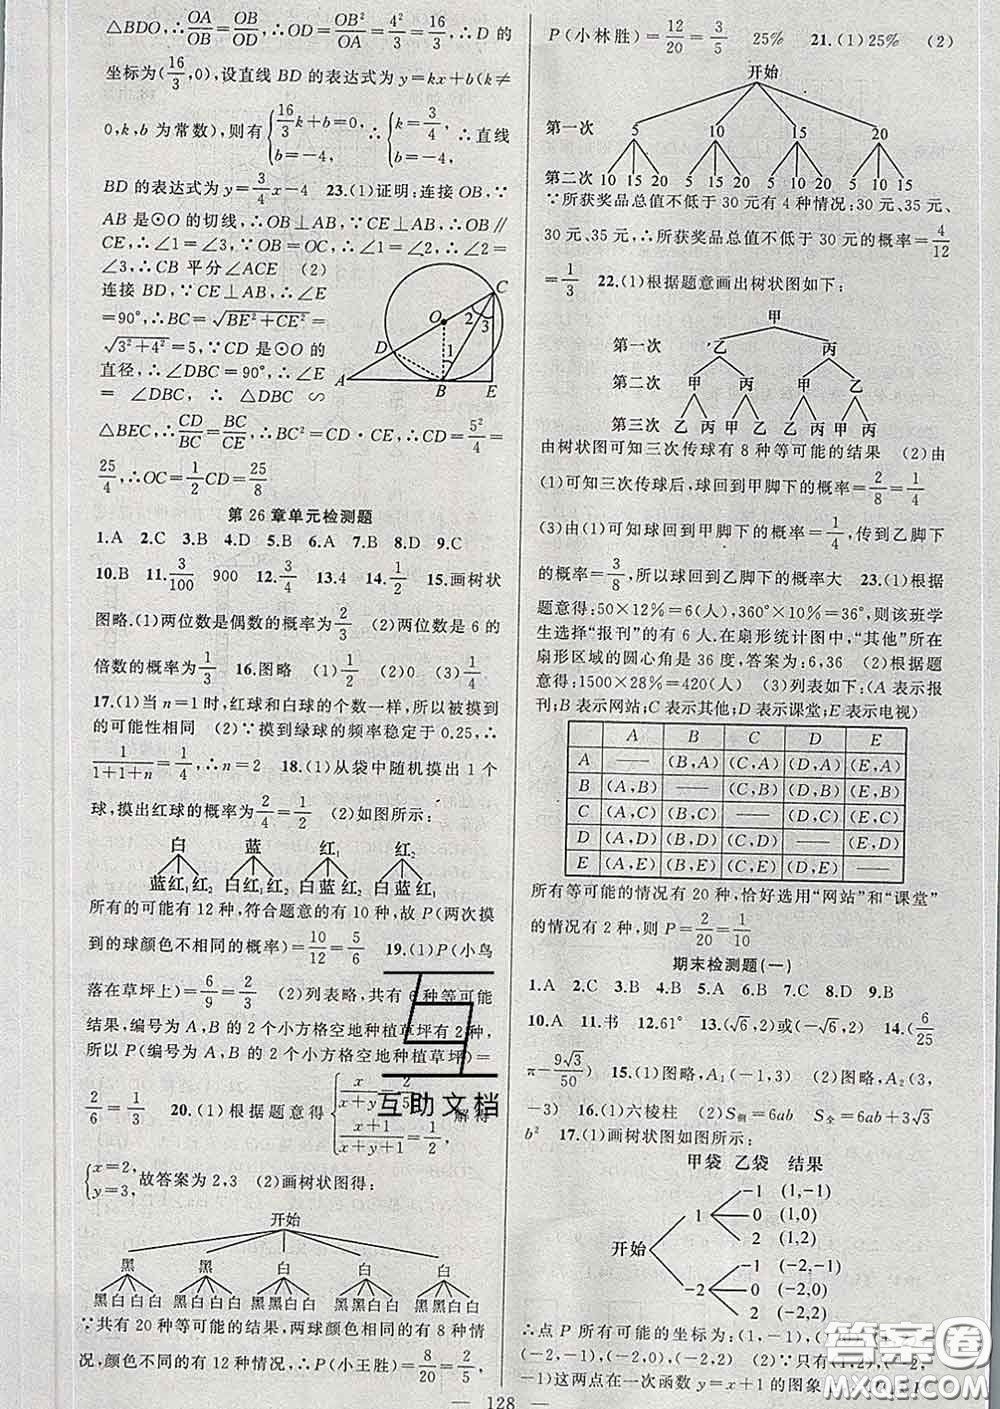 △BDO,∴OA/OB=OB/OD,∴OD=OB²/OA=4²/3=16/3,∴D的
坐标为(16/3,0),设直线 BD 的表达式为 y=kx+b(k≠
0,k,b 为常数),则有{16/3k+b=0, b=-4, ∴{k=3/4, b=-4, ∴直线
BD 的表达式为 y=3/4x-4 23.(1)证明:连接 OB,∵
AB 是⊙O 的切线,∴OB⊥AB,∵CE⊥AB,∴OB∥
CE,∴∠1=∠3,∵OB=OC,∴∠1=∠2,∴∠2=
∠3,∴CB 平分∠ACE (2)
连接 BD,∵CE⊥AB,∴∠E
=90°,∴BC=√BE²+CE²=
√3²+4²=5,∵CD 是⊙O 的
直径,∴∠DBC=90°,∴∠E
=∠DBC,∴△DBC∽
△BEC,∴CD/BC=BC/CE,∴BC²=CD·CE,∴CD=5²/4=
25/4,∴OC=1/2CD=25/8
C
O
2
3
D
1
A
B
E
第 26 章单元检测题
1.A 2.C 3.B 4.D 5.B 6.A 7.B 8.D 9.C
10.B 11.3/100 900 12.3/4 13.4 14.1/2 15.画树状
图略.(1)两位数是偶数的概率为2/3 (2)两位数是 6 的
倍数的概率为1/3 16.图略 (1)1/2 (2)0 (3)1/4
17.(1)当 n=1 时,红球和白球的个数一样,所以被摸到
的可能性相同 (2)∵摸到绿球的频率稳定于 0.25,∴
1/(1+1+n)=1/4,∴n=2 18.(1)从袋中随机摸出 1 个
球,摸出红球的概率为2/4=1/2 (2)如图所示:
白 蓝 红₁ 红₂
蓝红₁红₂ 白红₁红₂ 白蓝红₂ 白蓝红₁
所有的可能有 12 种,符合题意的有 10 种,故 P(两次摸
到的球颜色不相同的概率)=10/12=5/6 19.(1)P(小鸟
落在草坪上)=6/9=2/3 (2)列表略,共有 6 种等可能
结果,编号为 A,B 的 2 个小方格空地种植草坪有 2 种,
所以 P(编号为 A,B 的 2 个小方格空地种植草坪)=
2/6=1/3 20.(1)根据题意得{x/(x+y)=2/5, (x+1)/(x+y+1)=1/2, 解得
{x=2, y=3, 故答案为 2,3 (2)画树状图得:
开始
黑 黑 白 白 白
黑白白白 黑白白白 黑黑白白 黑黑白白 黑黑白白
∵共有 20 种等可能的结果,两球颜色相同的有 8 种情
况,颜色不同的有 12 种情况,∴P(小王胜)=8/20=2/5,
P(小林胜)=12/20=3/5 25% 21.(1)25% (2)
开始
第一次 5 10 15 20
第二次 10 15 20 5 15 20 5 10 20 5 10 15
∵所获奖品总值不低于 30 元有 4 种情况:30 元、35 元、
30 元、35 元,∴所获奖品总值不低于 30 元的概率=4/12
=1/3 22.(1)根据题意画出树状图如下:
甲
第一次 乙 丙
第二次 甲 丙 甲 乙
第三次 乙 丙 甲 乙 乙 丙 甲 丙
由树状图可知三次传球有 8 种等可能的结果 (2)由
(1)可知三次传球后,球回到甲脚下的概率=2/8=1/4
(3)由(1)可知球回到甲脚下的概率=1/4,传到乙脚下
的概率=3/8,所以球回到乙脚下的概率大 23.(1)根据
题意得:50×12%=6(人),360°×10%=36°,则该班学
生选择“报刊”的有 6 人.在扇形统计图中,“其他”所在
扇形区域的圆心角是 36 度,答案为:6,36 (2)根据题
意得:1500×28%=420(人) (3)列表如下:(A 表示报
刊;B 表示网站;C 表示其他;D 表示课堂;E 表示电视)
A B C D E
A —— (B,A) (C,A) (D,A) (E,A)
B (A,B) —— (C,B) (D,B) (E,B)
C (A,C) (B,C) —— (D,C) (E,C)
D (A,D) (B,D) (C,D) —— (E,D)
E (A,E) (B,E) (C,E) (D,E) ——
所有等可能的情况有 20 种,恰好选用“网站”和“课堂”
的情况有 2 种,则 P=2/20=1/10
期末检测题(一)
1.A 2.C 3.B 4.A 5.B 6.B 7.C 8.D 9.B
10.A 11.书 12.61° 13.(√6,2)或(-√6,2) 14.(6/25
π-9√3/50) 15.(1)图略,A₁(-1,3) (2)图略,A₂(3,
-3) 16.(1)六棱柱 (2)S侧=6ab S全=6ab+3√3
b² 17.(1)画树状图如图所示:
甲袋 乙袋 结果
-1 (1,-1)
1 0 (1,0)
2 (1,2)
开始
-1 (-2,-1)
-2 0 (-2,0)
2 (-2,2)
∴点 P 所有可能的坐标为:(1,-1),(1,0),(1,2),
(-2,-1),(-2,0),(-2,2) (2)∵只有(1,2),(-2,
-1)这两点在一次函数 y=x+1 的图象上
— 128 —
互助文档
答案圈
MXQE.COM